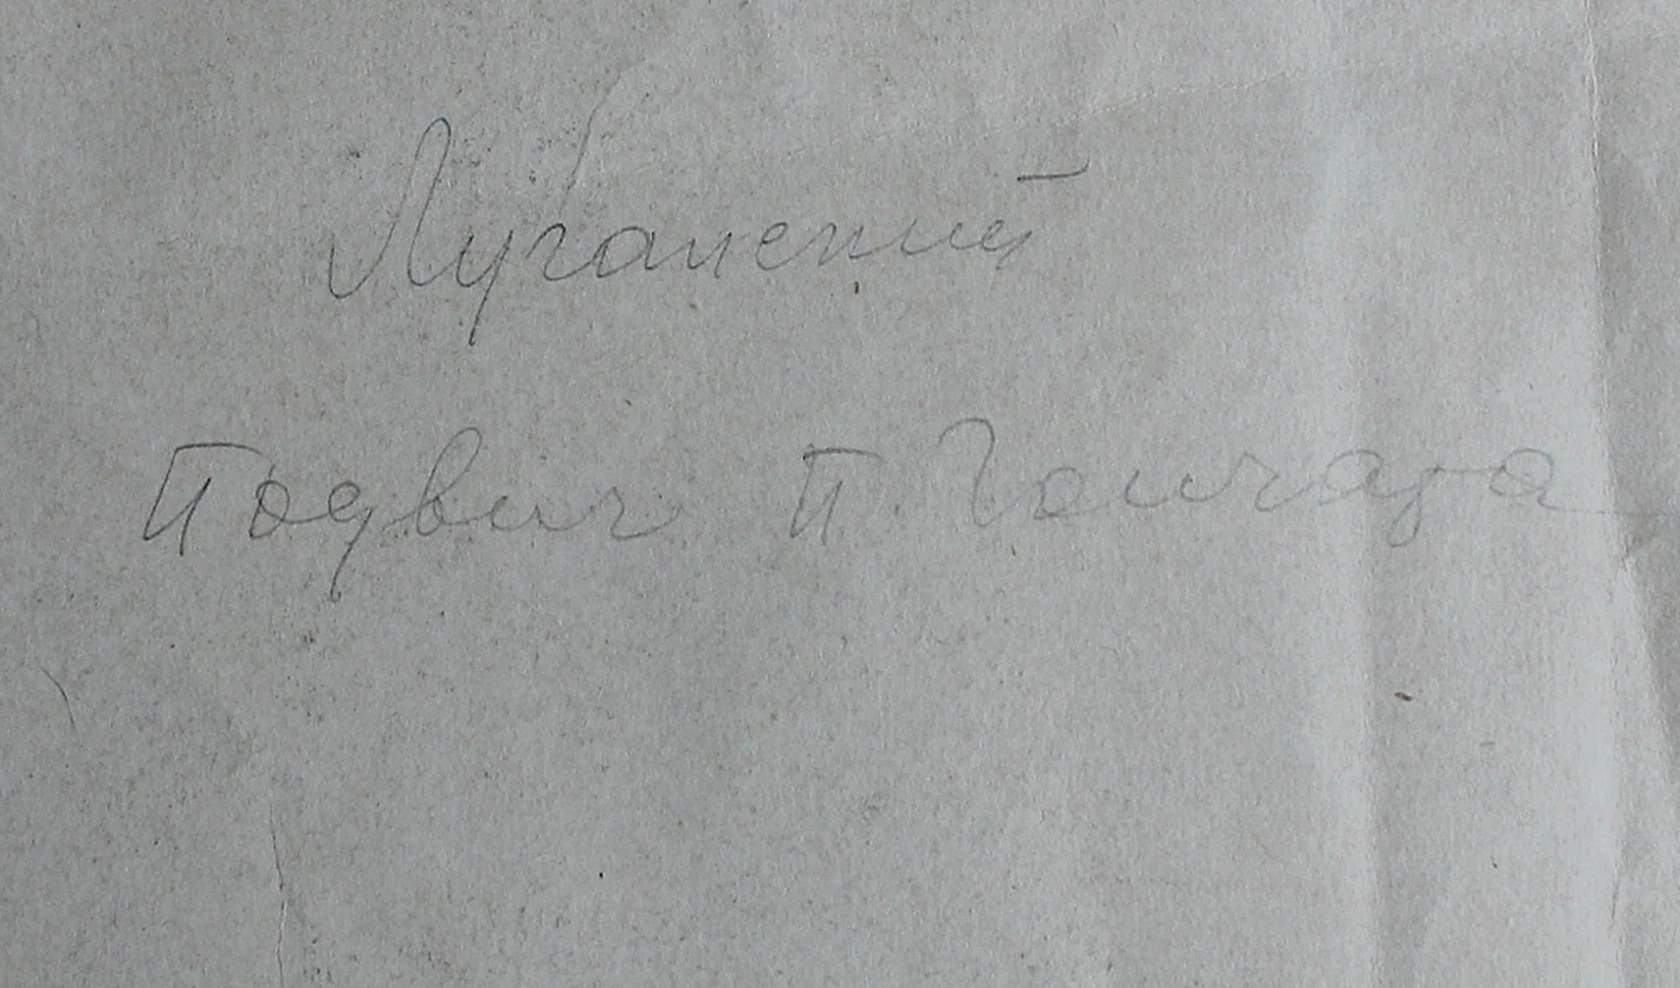 Луганский
Подвиг П. Гончара